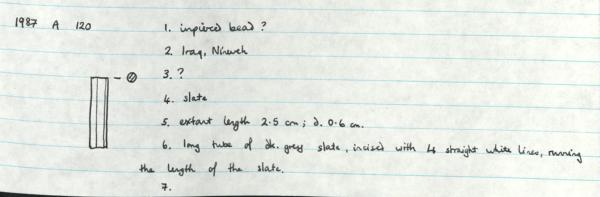 1987 A 120
1. unpierced bead ?
2. Iraq, Nineveh
3. ?
4. slate
5. extant length 2.5 cm; d. 0.6 cm.
6. long tube of dk. grey slate, incised with 4 straight white lines, running
the length of the slate.
7.